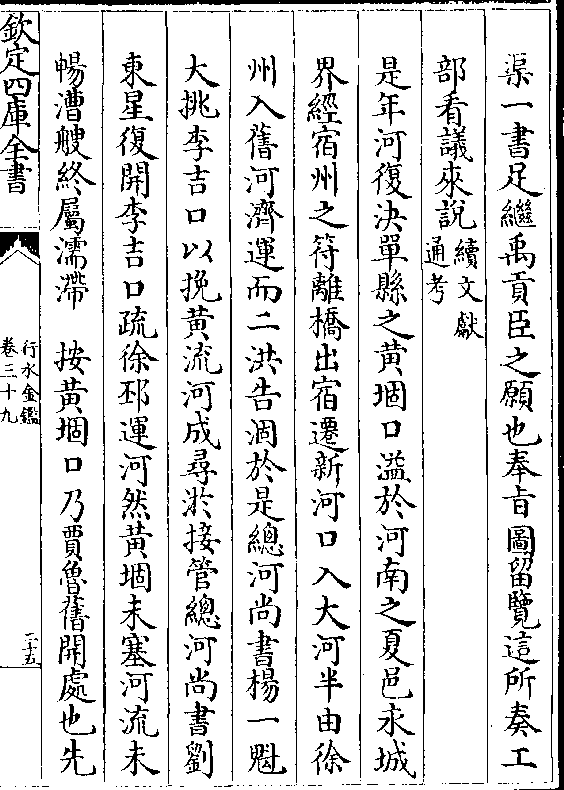 渠一書足繼禹貢臣之願也奉旨圖留覽這所奏工
部看議來說續文獻
通考
是年河復決單縣之黃堌口溢於河南之夏邑永城
界經宿州之符離橋出宿遷新河口入大河半由徐
州入舊河濟運而二洪告涸於是總河尚書楊一魁
大挑李吉口以挽黃流河成尋淤接管總河尚書劉
東星復開李吉口疏徐邳運河然黃堌未塞河流未
暢漕艘終屬濡滯　按黃堌口乃賈魯舊開處也先
欽定四庫全書
行水金鑑
卷三十九
二十五